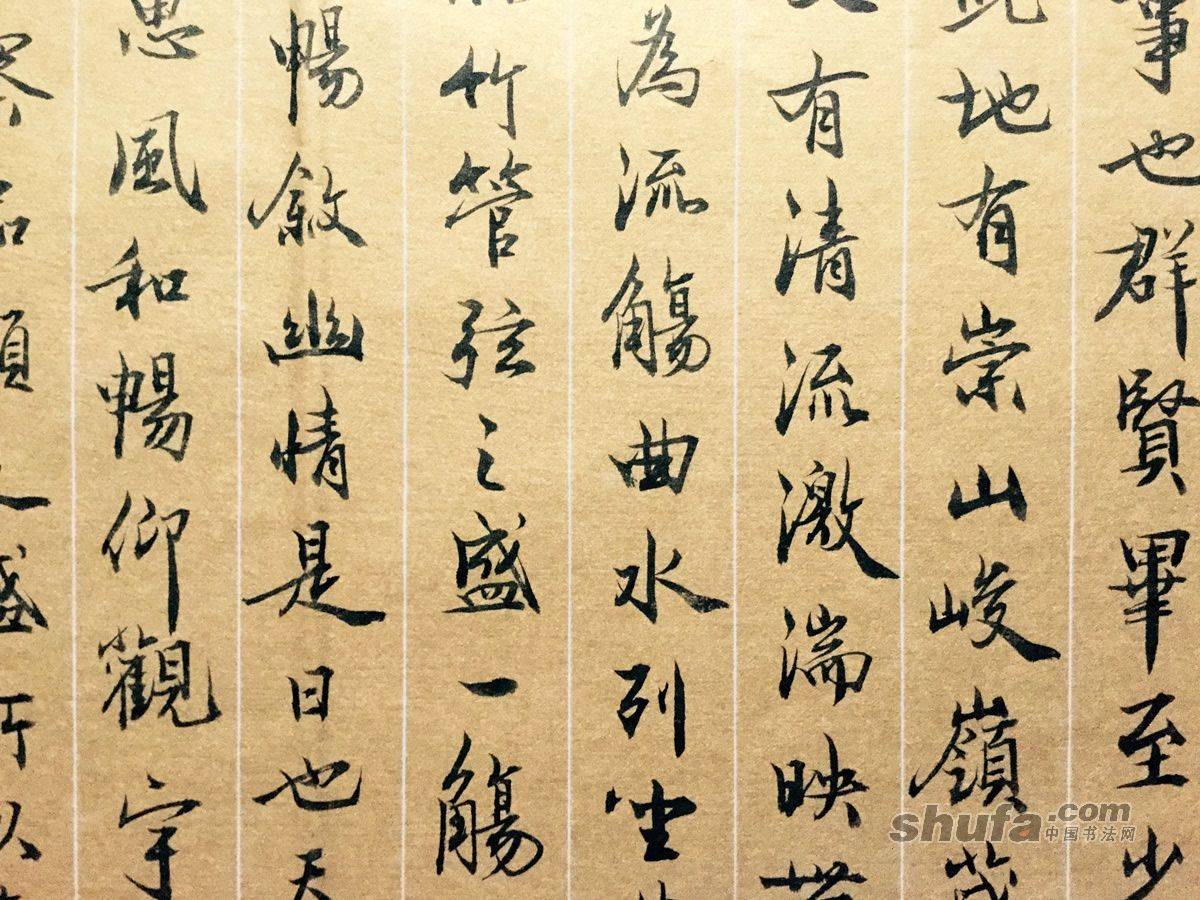 事也群賢畢至少
此地有崇山峻嶺茂
又有清流激湍映帶
為流觴曲水列坐其
竹管弦之盛一觴
暢敘幽情是日也天
惠風和暢仰觀宇
察品類之盛所以
shufa.com
中国书法网